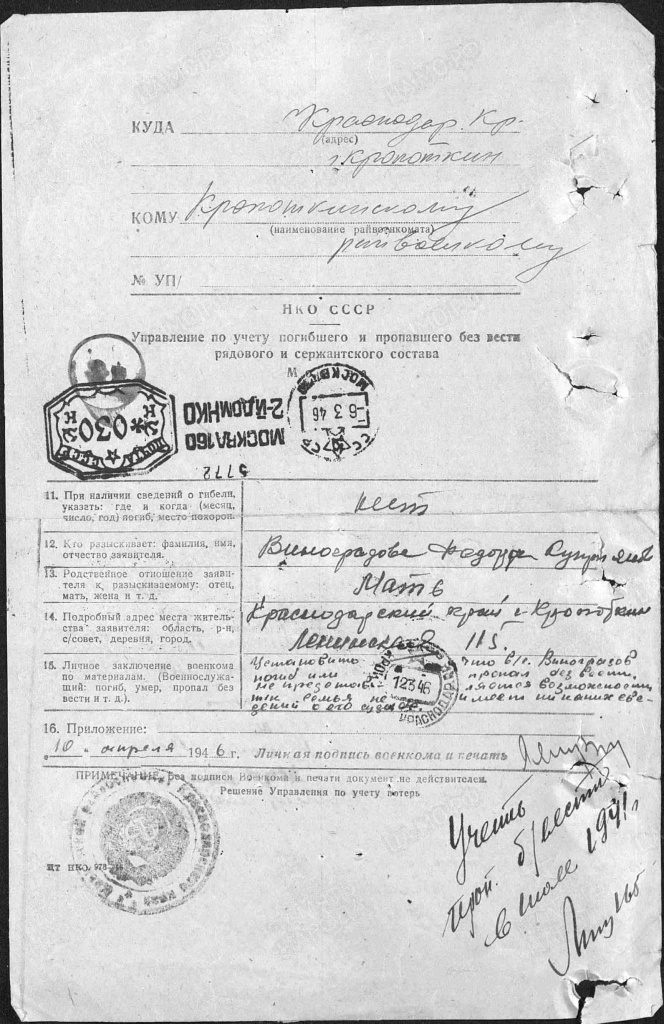 КУДА Краснодар. Кр.
(адрес)
г. Кропоткин
КОМУ Кропоткинскому
(наименование райвоенкомата)
райвоенкому
№ УП/
НКО СССР
Управление по учету погибшего и пропавшего без вести
рядового и сержантского состава
М
МОСКВА
6 3 46
СССР
ПОЧТА
СССР
К 030 К
МОСКВА 160
2-Й ДОМ НКО
5772
11. При наличии сведений о гибели, нет
указать: где и когда (месяц,
число, год) погиб, место похорон.
12. Кто разыскивает: фамилия, имя, Виноградова
отчество заявителя.
13. Родственное отношение заяви- Мать
теля к разыскиваемому: отец,
мать, жена и т. д.
14. Подробный адрес места житель- Краснодарский край г. Кропоткин
ства заявителя: область, р-н,
с/совет, деревня, город. 115.
15. Личное заключение военкома Установить что в/с. Виноградов
по материалам. (Военнослужа- погиб или пропал без вести
щий: погиб, умер, пропал без не представляется возможности
вести и т. д.). тк. семья не имеет никаких све-
дений о его
КРОПОТКИН
12 3 46
КРАСНОДАРСК
16. Приложение:
10 апреля 1946 г. Личная подпись военкома и печать
ПРИМЕЧАНИЕ. Без подписи Военкома и печати документ не действителен.
Решение Управления по учету потерь
Учесть
проп. б/вести
в июле 1941 г
цт нко. 978